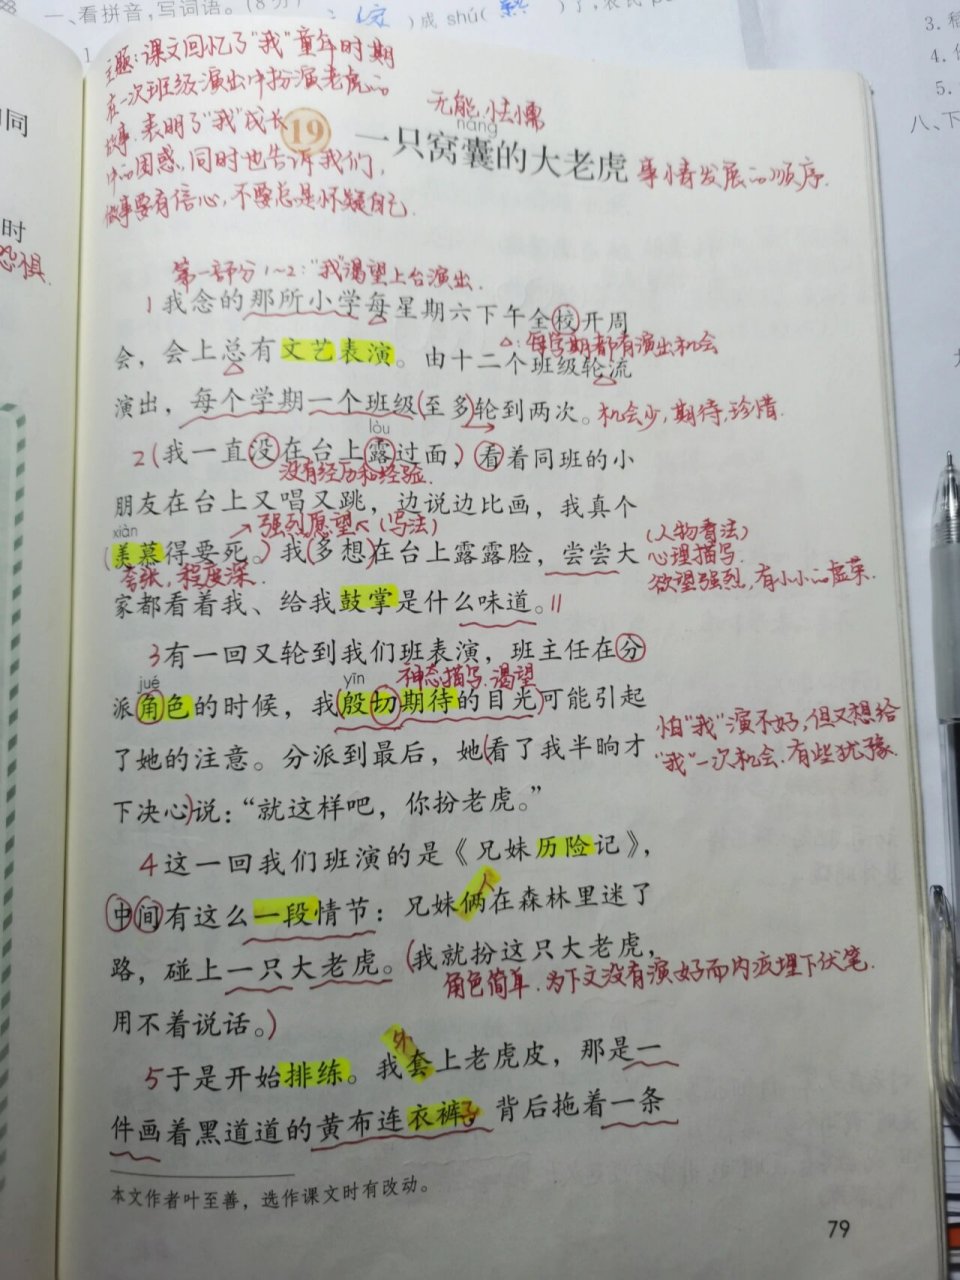 一、看拼音,写词语。(8分)
)成 shú( 熟 )了,农民
3.
4.
5.
八、下
同
时
恐惧.
主题:课文回忆了“我”童年时期
在一次班级演出中扮演老虎的
故事.表明了“我”成长
中的困惑,同时也告诉我们,
做事要有信心,不要总是怀疑自己.
无能.怯懦
nāng
19 一只窝囊的大老虎 事情发展的顺序.
第一部分1~2:“我”渴望上台演出.
1我念的那所小学每星期六下午全校开周
△:每学期都有演出机会
会,会上总有文艺表演。由十二个班级轮流
演出,每个学期一个班级(至多)轮到两次。机会少,期待,珍惜.
lòu
2(我一直没在台上露过面,)看着同班的小
没有经历和经验.
朋友在台上又唱又跳,边说边比画,我真个
xiàn
强烈愿望(写法) (人物看法)
(羡慕得要死。)我(多想)在台上露露脸,尝尝大 心理描写.
夸张,程度深. 欲望强烈,有小小的虚荣.
家都看着我、给我鼓掌是什么味道。||
3有一回又轮到我们班表演,班主任在分
jué yīn 神态描写.渴望
派角色的时候,我(殷切期待的目光)可能引起
怕“我”演不好,但又想给
了她的注意。分派到最后,她(看了我半晌才
“我”一次机会.有些犹豫.
下决心)说:“就这样吧,你扮老虎。”
4这一回我们班演的是《兄妹历险记》,
中间有这么一段情节:兄妹俩在森林里迷了
路,碰上一只大老虎。(我就扮这只大老虎,
角色简单.为下文没有演好而内疚埋下伏笔.
用不着说话。)
5于是开始排练。我套上老虎皮,那是一
件画着黑道道的黄布连衣裤。背后拖着一条
本文作者叶至善,选作课文时有改动。
79